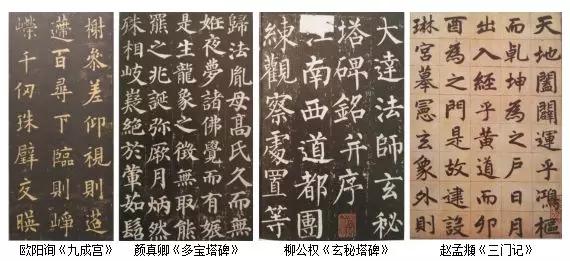 榭參差仰視則迢
遰百尋下臨則崢
嶸千仞珠璧交暎
欧阳询《九成宫》
歸法胤母高氏久而無
妊夜夢諸佛覺而有娠
是生龍象之徵無取熊
羆之兆誕弥厥月炳然
殊相岐嶷絶於葷茹髫
颜真卿《多宝塔碑》
大達法師玄秘
塔碑銘并序
江南西道都團
練觀察處置等
柳公权《玄秘塔碑》
天地闔闢運乎鴻樞
而乾坤為之戶日月
出入經乎黃道而卯
酉為之門是故建設
琳宮摹憲玄象外則
赵孟頫《三门记》